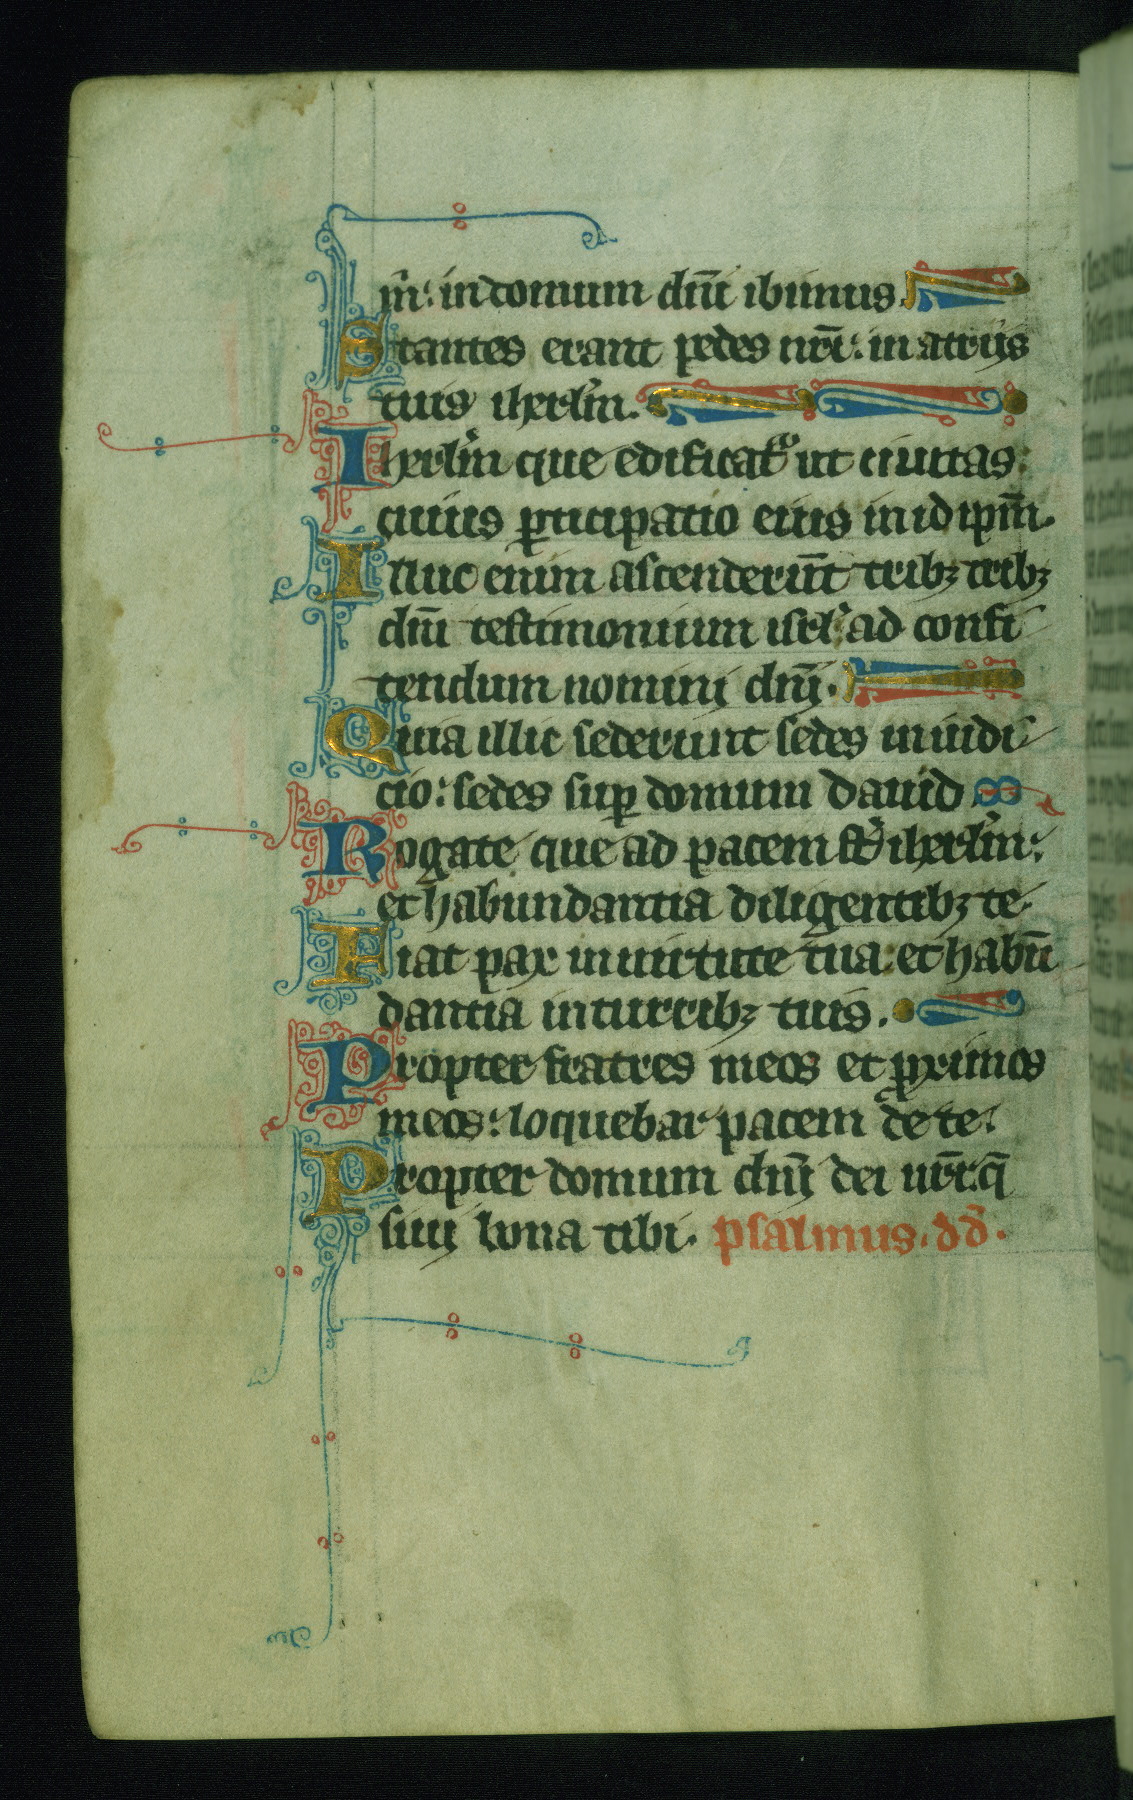 m̄: in domum dn̄i ibimus.
Stantes erant pedes nr̄i: in atriis
tuis iherlm̄.
Iherlm̄ que edificat᷑ ut ciuitas:
cuius ꝑticipatio eius in idipm̄.
Illuc enim ascenderūt tribꝫ tribꝫ
dn̄i testimonium isrl̄ ad confi
tendum nomini dn̄i.
Quia illic sederunt sedes in iudi
cio: sedes suꝑ domum dauid
Rogate que ad pacem st̄ iherlm̄:
et habundantia diligentibꝫ te.
Fiat pax in uirtute tua: et habū
dantia in turribꝫ tuis.
Propter fratres meos et ꝓximos
meos: loquebar pacem de te:
Propter domum dn̄i dei nr̄i: q̄
siui bona tibi. psalmus. dd̄.